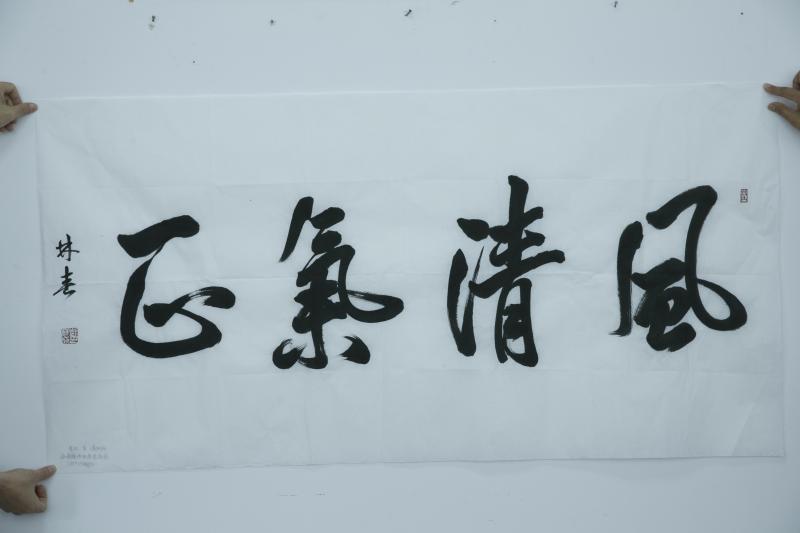 風清氣正
林春